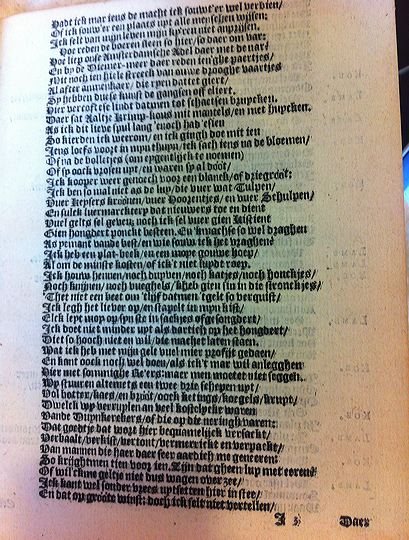 Hadt ick mar iens de macht ick souwt'er wel verbien/
Of ick souw'er een plaets upt alle menschen wijsen:
Ick selt van mijn leven mijn kyeren niet anprijsen.
Hoe reden de boeren steen so hier/ so daer om var:
Hoe liep onse Amsterdamsche Adel daer met de nar/
En by de Diemer-meer daer reden ien'ghe paertjes/
Mit noch ien hiele streeck van ouwe drooghe vaertjes
Al after annenkaer/ die ryen dattet giert/
Sy hebben die kunst de ganslen off eliert.
Hier vercoft ick lindt datmen tot schaetsen bruycken.
Daer sat Aaltje Krimp-kous mit mantels/ en met huycken.
As ick dit lieve spul lang' enoch had esien
So kierden ick weerom/ en ick gingh doe mit ien
Iens lofs voort in mijn thuyn/ ick sach iens na de bloemen/
Of na de bolletjes (om eygentijck te noemen)
Of sp oock vrosen upt/ en waren sp al doot/
Ick kooper weer genoch voor een blanck/ of dziegroot:
Ick ben so mal niet as de luy/ die vuer wat Tulpen/
Vuer Keysers kroonen/ vuer Hoorentjes/ en vuer Schulpen/
En sulck luermarckterp dat nieuwers toe en dient
Vuel gelts sel geven; noch ick sel vuer gien Listient
Gien hongdert pondt besteen. En knachse so wel draghen
As yemant vande best/ en wie souw ick het vraghen?
Ick heb een plat-beck/ en een mope gouwe hoep/
Al om de minste kosten/ of ick't niet lupdt roep.
Ick houw hennen/ noch dupven/ noch katjes/ noch honckjes/
Noch knijnen/ noch vueghels/ kheb gien sin in die stronckjes/
'Thet niet een beet om 'tlijf datmen 'tgelt so verquist/
Ick legh het liever op/ en stapelt in mijn kist/
Elck ley mop op syn tit in sackjes of gesongdert/
Ick doet niet minder upt als dartich op het hongdert/
Diet so hooch niet en wil/ die machet laten staen.
Wat ick heb met mijn gelt vuel mier profijt gedaen/
En kant oock noch wel doen/ als ick't mar wil anleggen
Hier met sommighe Ke'ers: maer men moetet niet seggen.
Wy stuuren altemets een twee drie schepen upt/
Vol boter/ kaes/ en broot/ oock ketings/ kaegels/ krupt/
Dwelck wy verruplen an veel kostelycke waren
Vande Duynkerckers/ of die op die neringh varen:
Dat goedtje dat wort hier bequamelijck versackt/
Verhaalt/ verkist/ vertont/ vermerrickt en verpackt/
Van mannen die haer daer seer aardich me generen:
So krijghtmen tien voor ien. Zijn dat gheen lup met eeren?
Of wil ick me geltje niet dus wagen over zee/
Ick kant wel sonder vrees uptsetten hier in stee/
En dat op groote winst: doch ick selt niet vertellen/
I 3
Daer